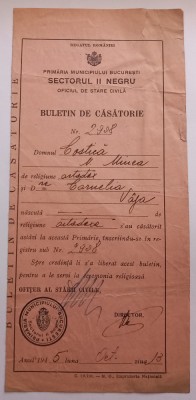 REGATUL ROMÂNIEI
PRIMĂRIA MUNICIPIULUI BUCUREȘTI
SECTORUL II NEGRU
OFICIUL DE STARE CIVILĂ
BULETIN DE CĂSĂTORIE
Nr. 2938
Domnul Costică
D. Mincu
de religiune ortodox
și D-ra Cornelia
născută
de
religiune ortodoxă s'au căsătorit
astăzi la această Primărie, înscriindu-se în re-
gistru sub Nr. 2938
Spre credință li s'a liberat acest buletin,
pentru a le servi la ceremonia religioasă
OFIȚER AL STĂRII CIVILE,
DIRECTOR,
Anul 193 5 luna Oct. ziua 13
BULETIN DE CĂSĂTORIE
PRIMĂRIA MUNICIPIULUI BUCUREȘTI